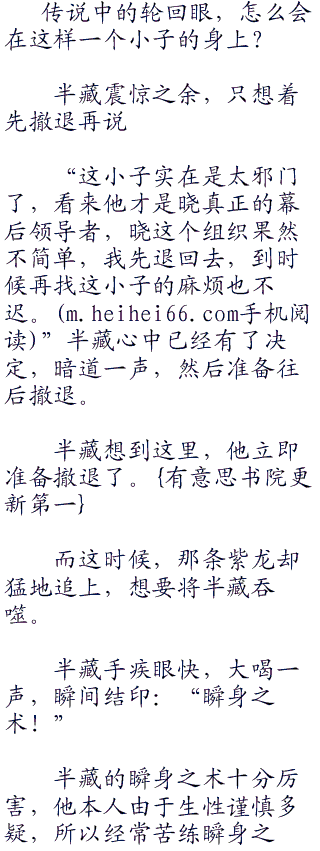 传说中的轮回眼，怎么会
在这样一个小子的身上？
半藏震惊之余，只想着
先撤退再说
“这小子实在是太邪门
了，看来他才是晓真正的幕
后领导者，晓这个组织果然
不简单，我先退回去，到时
候再找这小子的麻烦也不
迟。(m.heihei66.com手机阅
读)”半藏心中已经有了决
定，暗道一声，然后准备往
后撤退。
半藏想到这里，他立即
准备撤退了。{有意思书院更
新第一}
而这时候，那条紫龙却
猛地追上，想要将半藏吞
噬。
半藏手疾眼快，大喝一
声，瞬间结印：“瞬身之
术！”
半藏的瞬身之术十分厉
害，他本人由于生性谨慎多
疑，所以经常苦练瞬身之